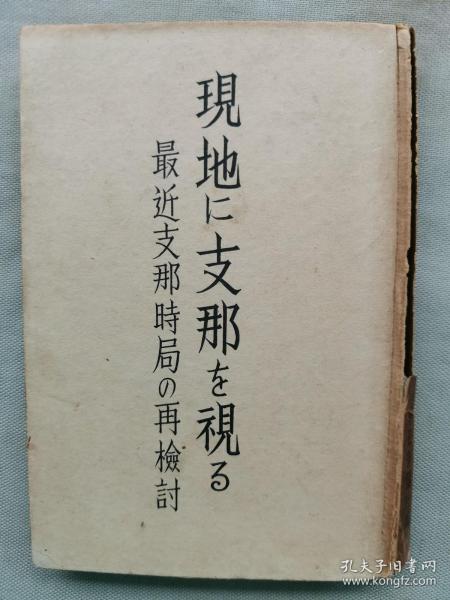 現地に支那を視る
最近支那時局の再檢討
孔夫子旧书网
www.kongfz.com